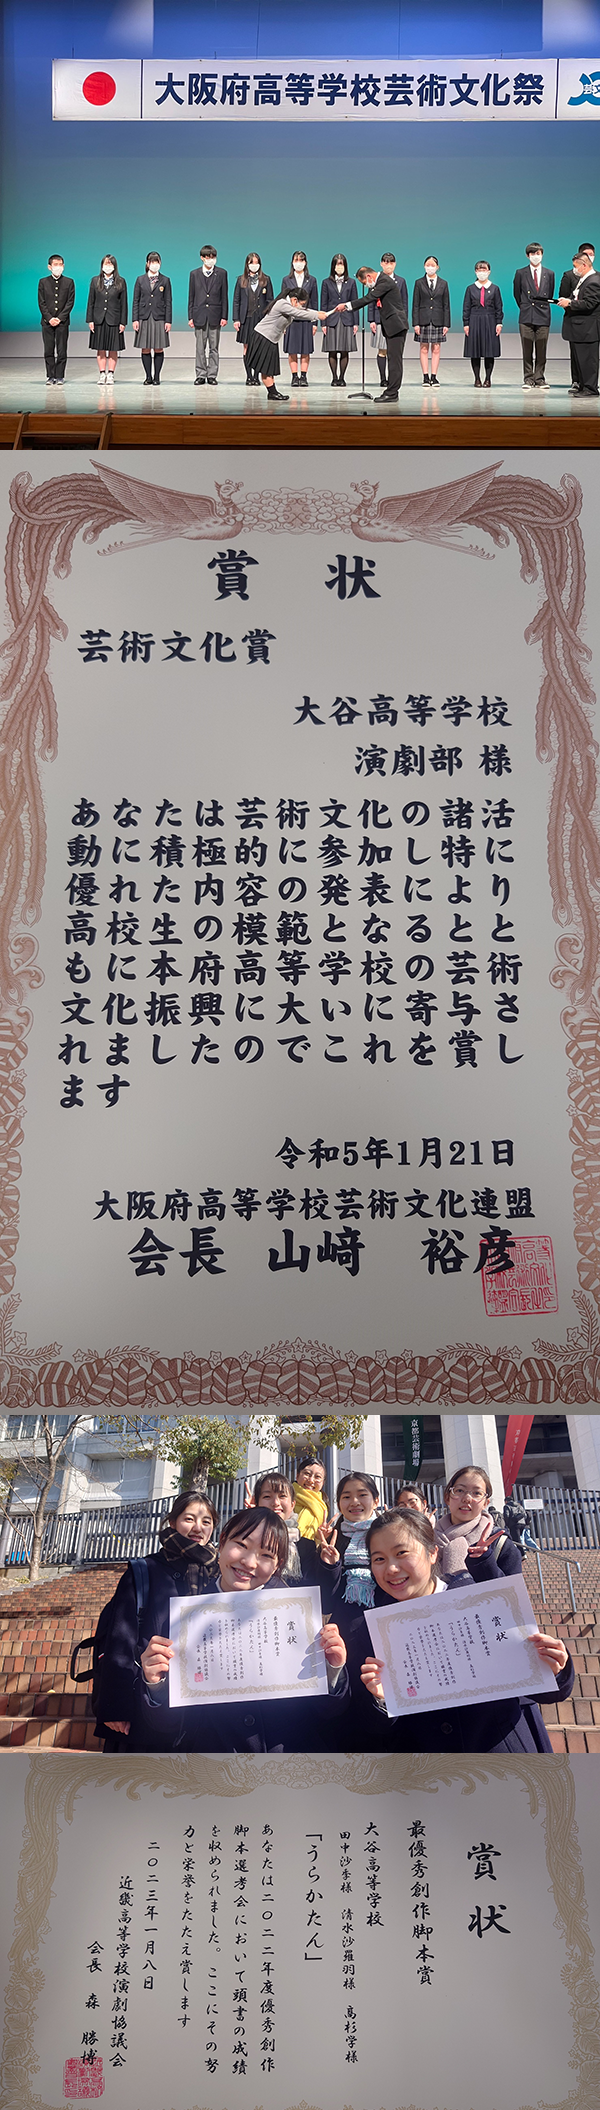 大阪府高等学校芸術文化祭
賞 状
芸術文化賞
大谷高等学校
演劇部 様
あなたは芸術文化の諸活
動に積極的に参加し特に
優れた内容の発表により
高校生の模範となると と
も に本府高等学校の芸術
文化振興に大いに寄与さ
れましたのでこれを賞し
ます
令和5年1月21日
大阪府高等学校芸術文化連盟
会長 山﨑 裕彦
京都芸術劇場
賞状
最優秀創作脚本賞
大谷高等学校
賞状
最優秀創作脚本賞
大谷高等学校
賞状
最優秀創作脚本賞
大谷高等学校
田中沙季様 清水沙羅羽様 高杉学様
「うらかたん」
あなたは二〇二二年度優秀創作
脚本選考会において頭書の成績
を収められました。ここにその努
力と栄誉をたたえ賞します
二〇二三年一月八日
近畿高等学校演劇協議会
会長 森 勝博